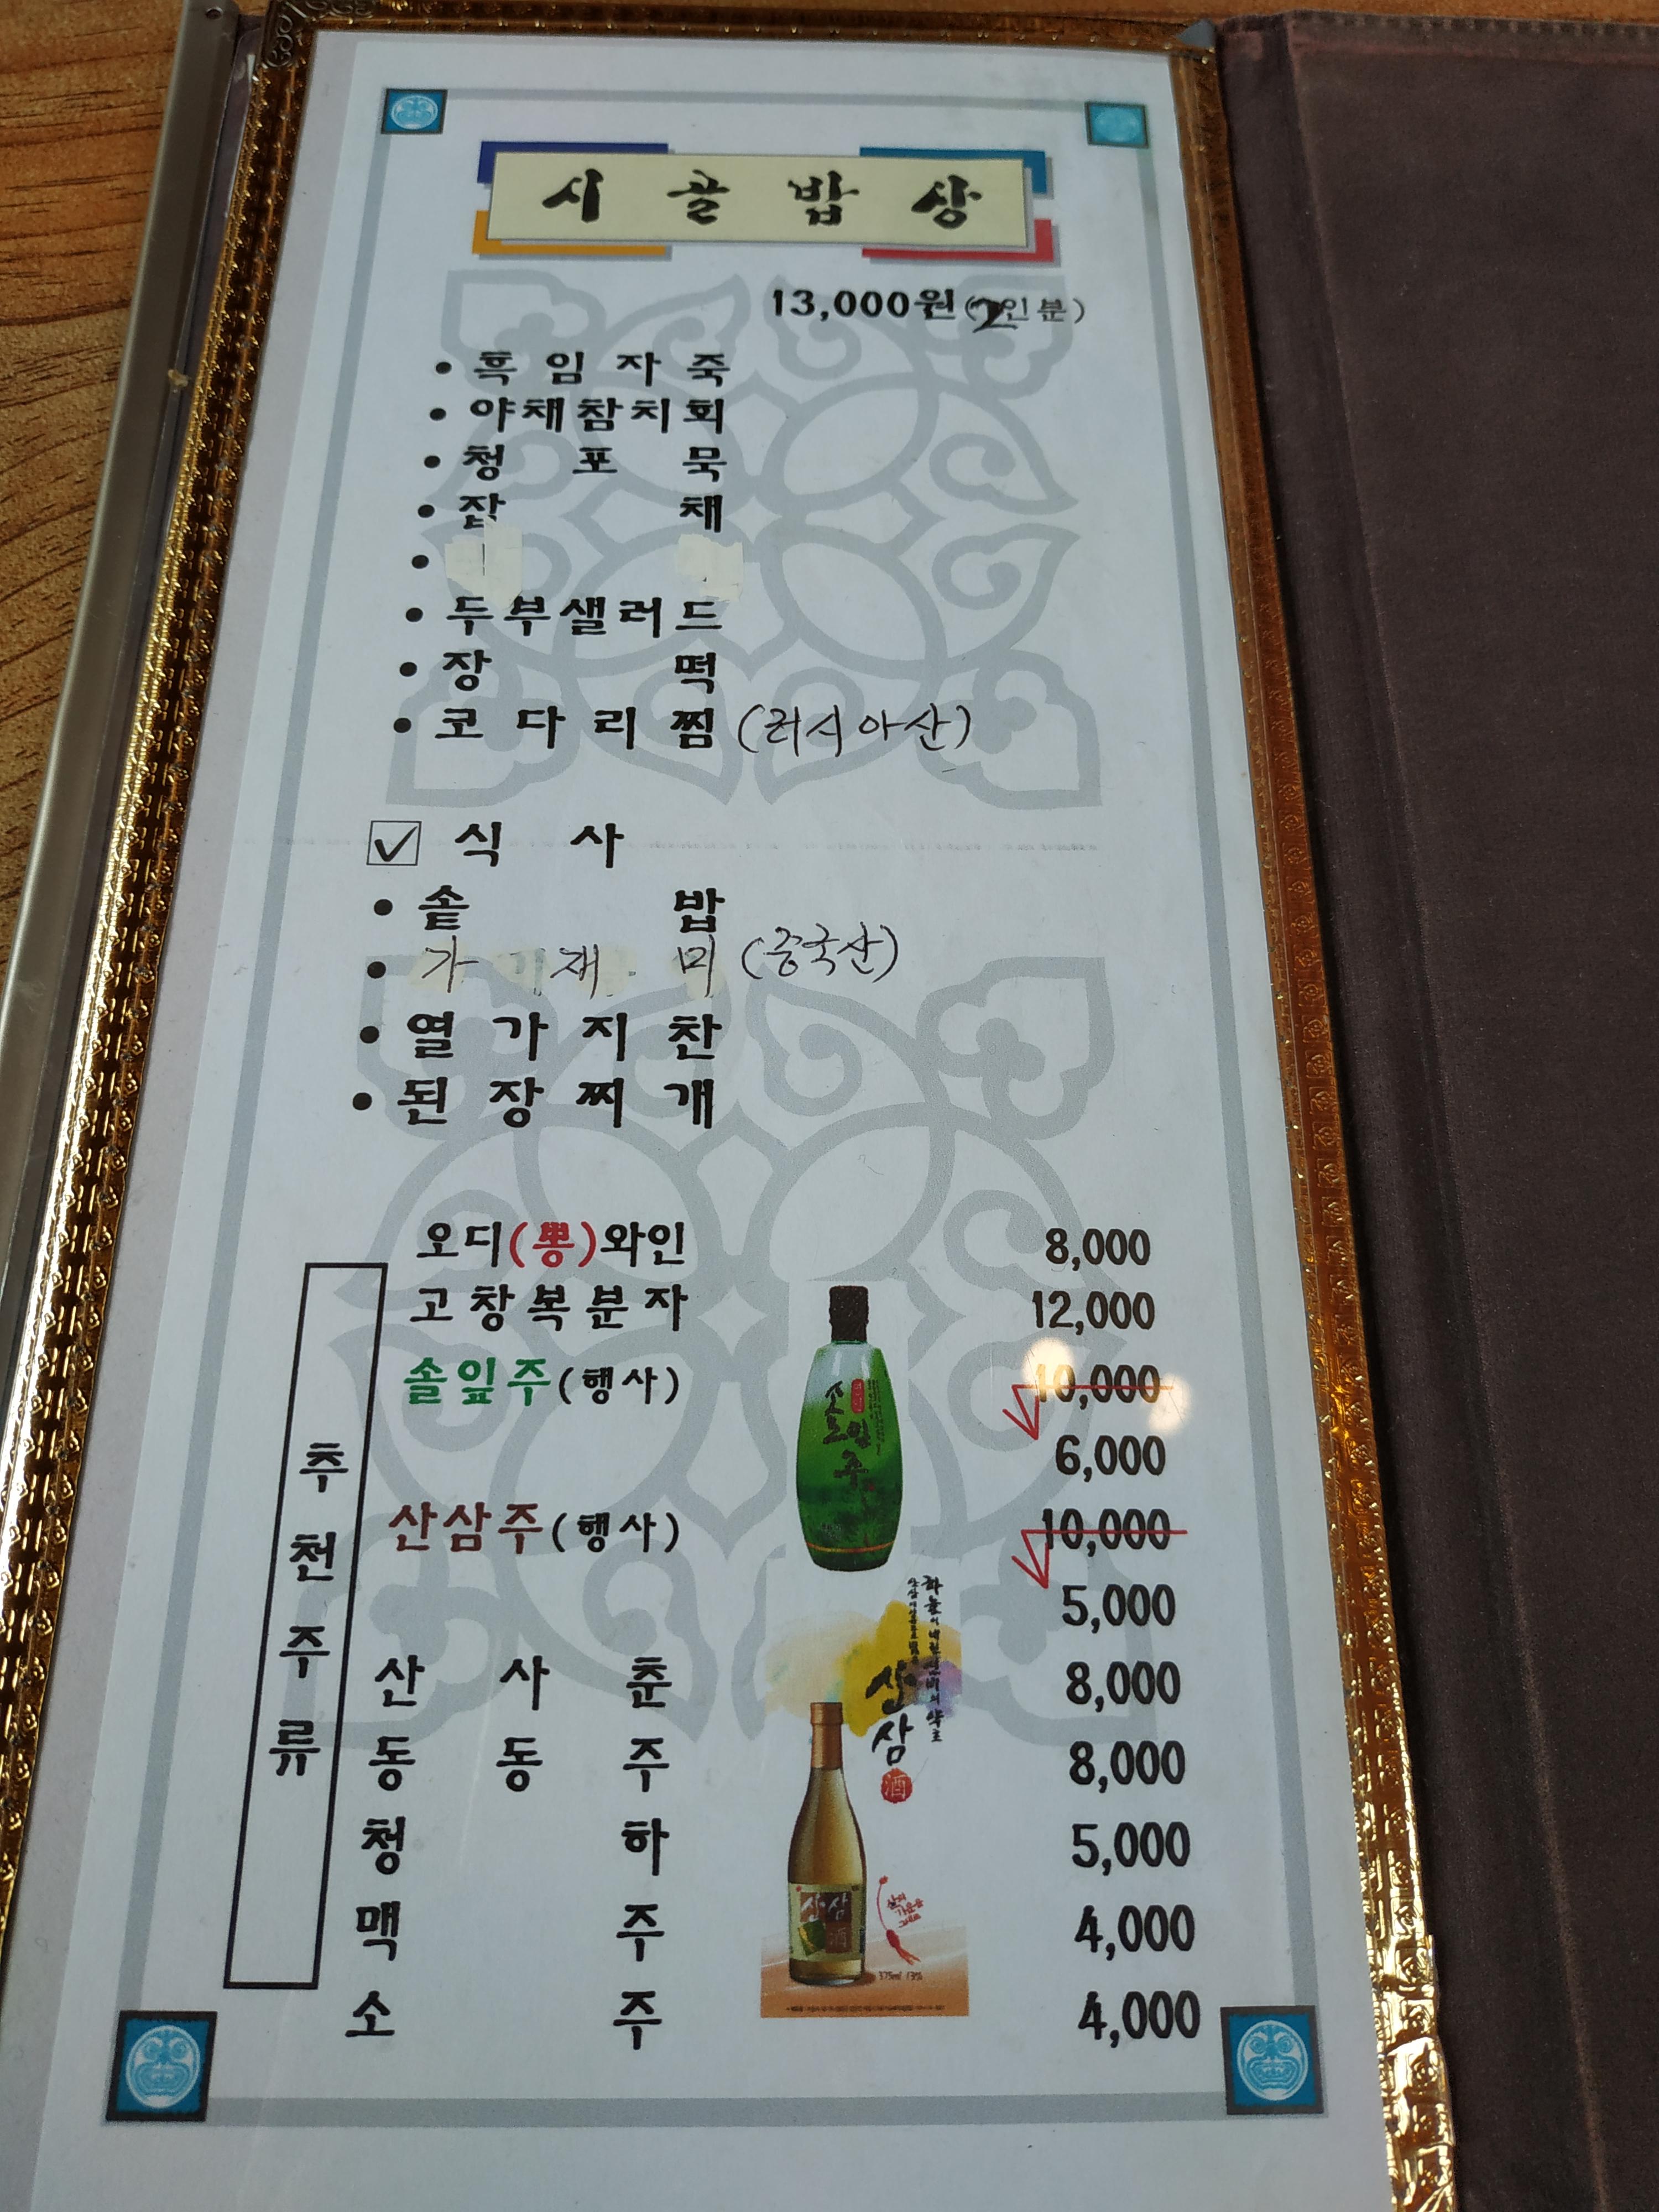 시골밥상
13,000원(2인분)
• 흑임자죽
• 야채참치회
• 청포묵
• 잡채
•
• 두부샐러드
• 장떡
• 코다리찜 (러시아산)
☑ 식사
• 솥밥
• 가재미 (중국산)
• 열가지찬
• 된장찌개
추천주류
오디(뽕)와인 8,000
고창복분자 12,000
솔잎주(행사) 10,000
6,000
산삼주(행사) 10,000
5,000
산사춘 8,000
동동주 8,000
청하 5,000
맥주 4,000
소주 4,000
솔잎주
산삼
酒
산삼
375ml 13%